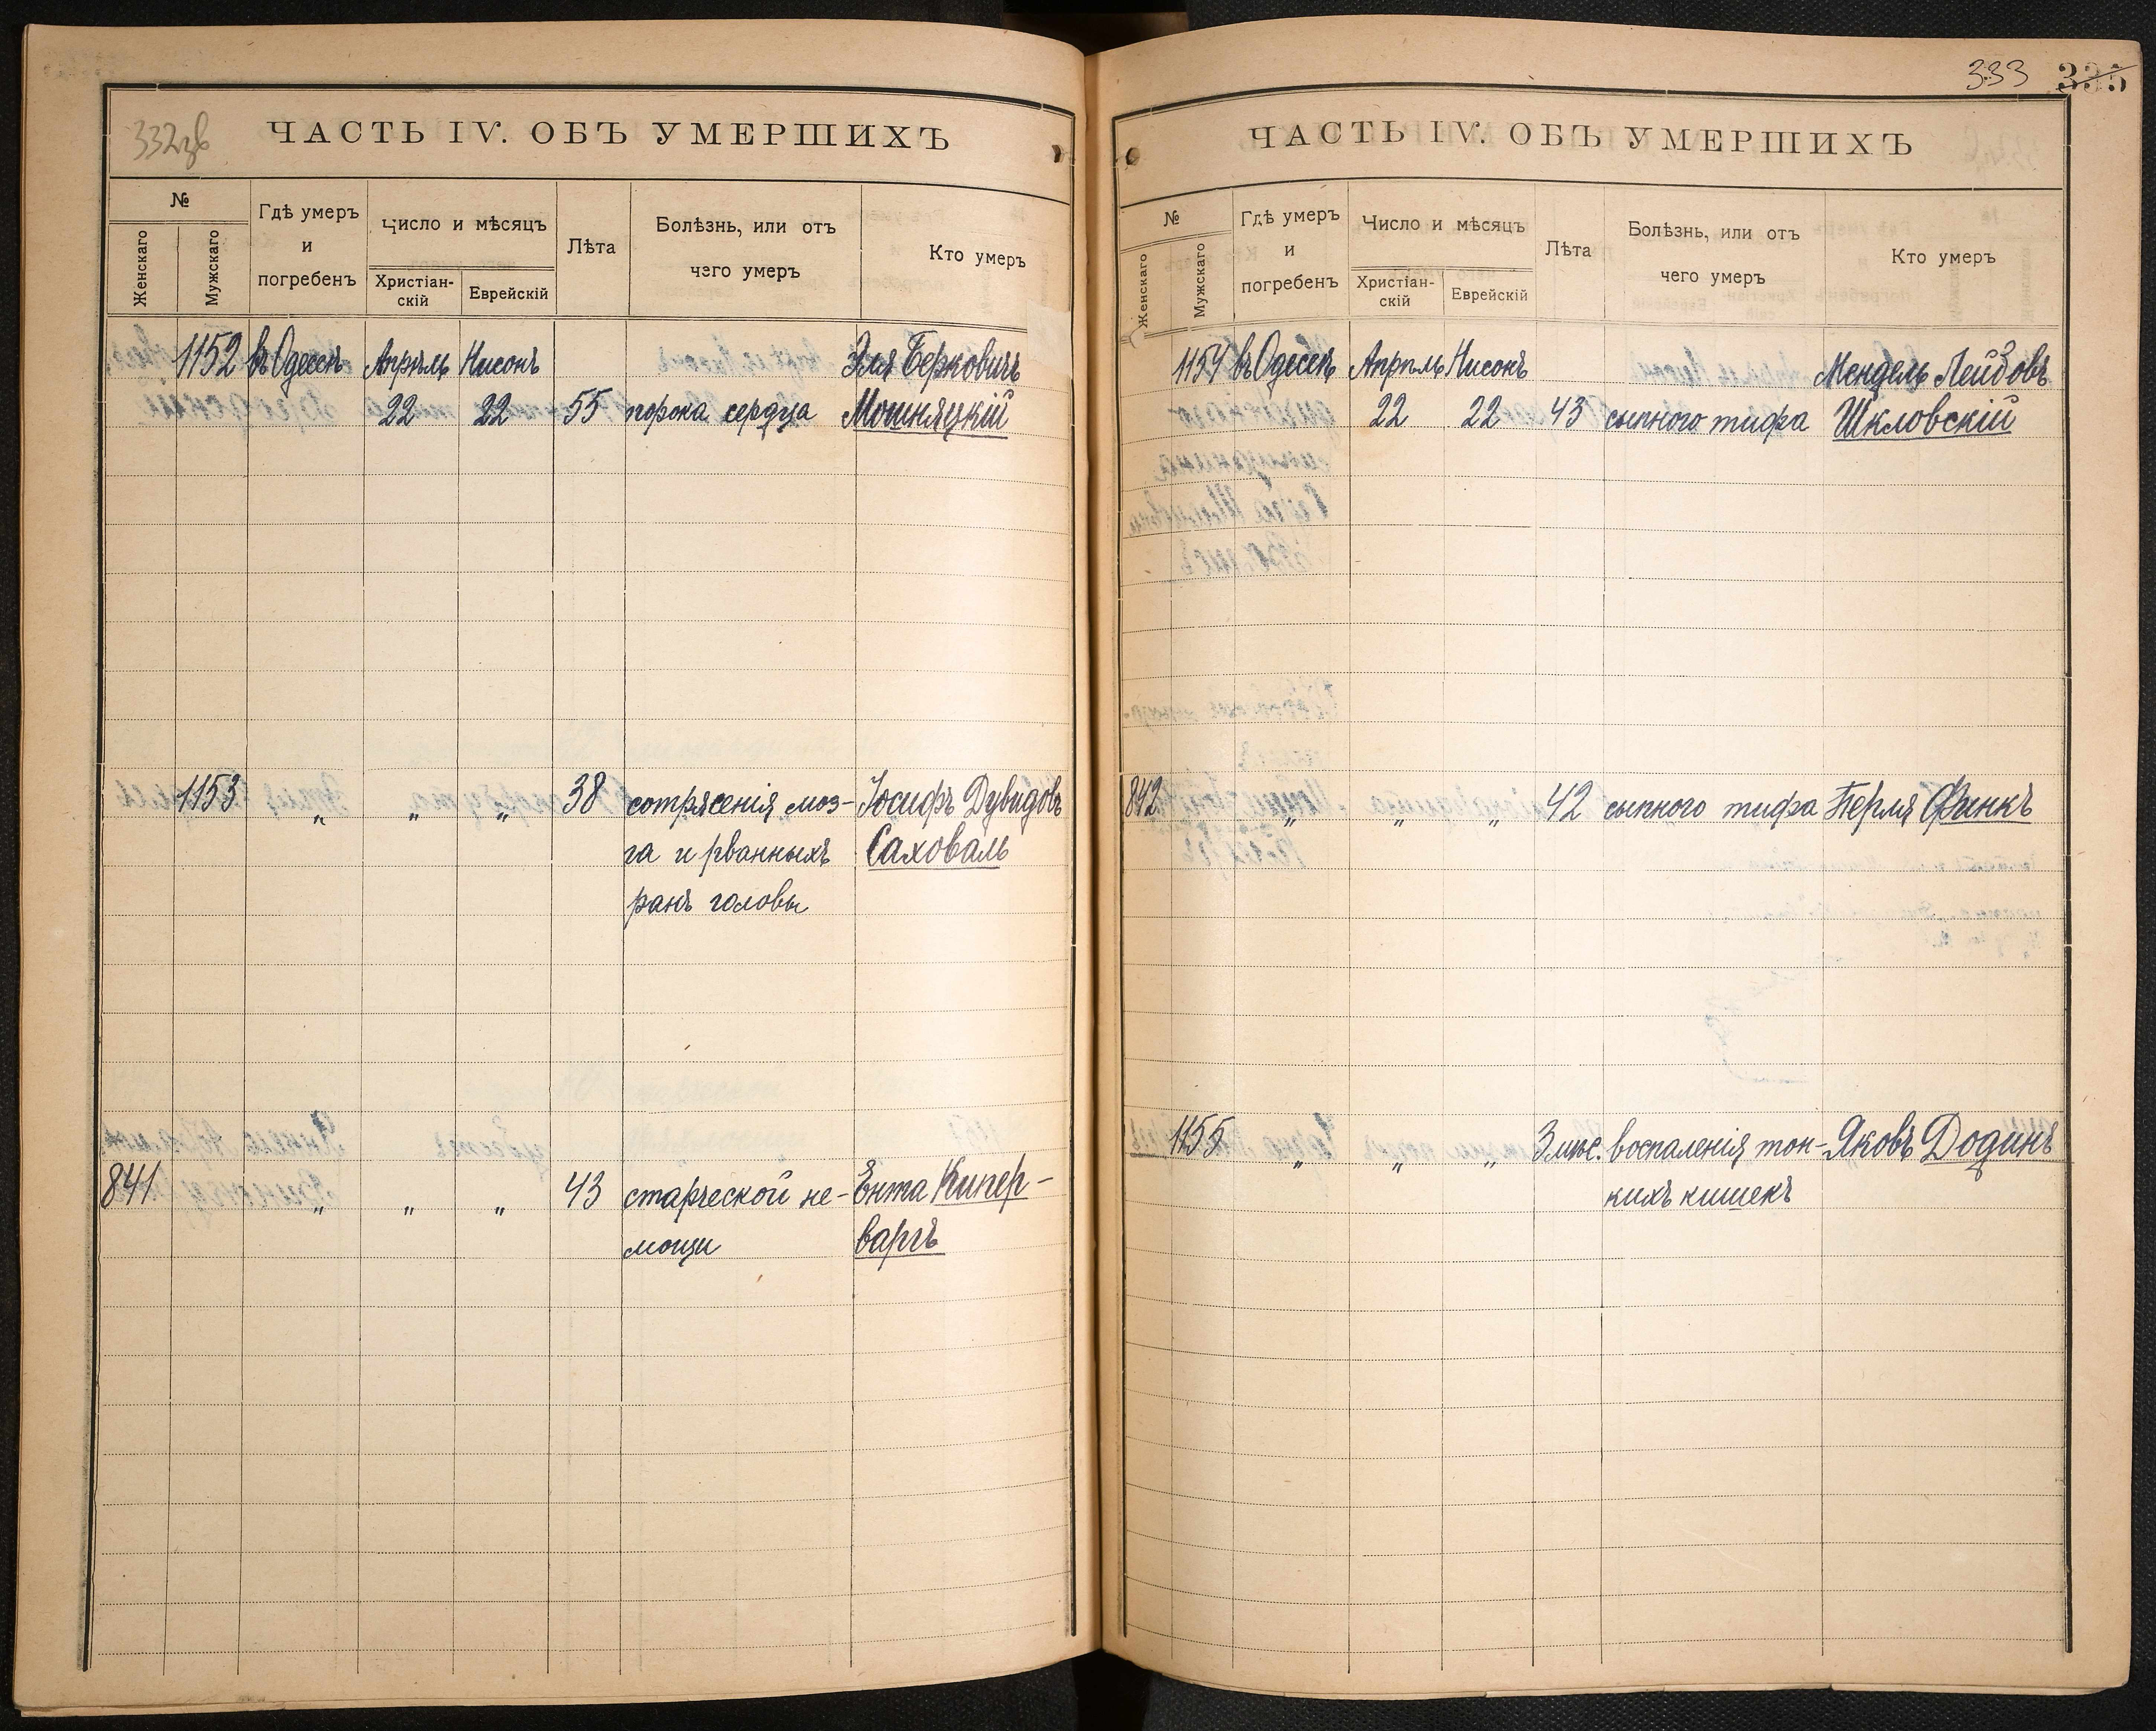 332зв
ЧАСТЬ IV. ОБЪ УМЕРШИХЪ
№
Женскаго
Мужскаго
Гдѣ умеръ
и
погребенъ
Число и мѣсяцъ
Христіан-
скій
Еврейскій
Лѣта
Болѣзнь, или отъ
чего умеръ
Кто умеръ
1152 въ Одессѣ Апрѣль Нисонъ Эля Берковичъ
22 22 55 порока сердца Мошняцкій
1153 „ „ „ 38 сотрясенія моз- Іосифъ Дувидовъ
га и рванныхъ Саховаль
ранъ головы
841 „ „ „ 43 старческой не- Ента Кипер-
мощи варгъ
333 335
ЧАСТЬ IV. ОБЪ УМЕРШИХЪ
№
Женскаго
Мужскаго
Гдѣ умеръ
и
погребенъ
Число и мѣсяцъ
Христіан-
скій
Еврейскій
Лѣта
Болѣзнь, или отъ
чего умеръ
Кто умеръ
1154 въ Одессѣ Апрѣль Нисонъ Мендель Лейбовъ
22 22 43 сыпного тифа Шкловскій
842 „ „ „ 42 сыпного тифа Перля Финкъ
1155 „ „ „ 3 мѣс. воспаленія тон- Яковъ Додинъ
кихъ кишекъ